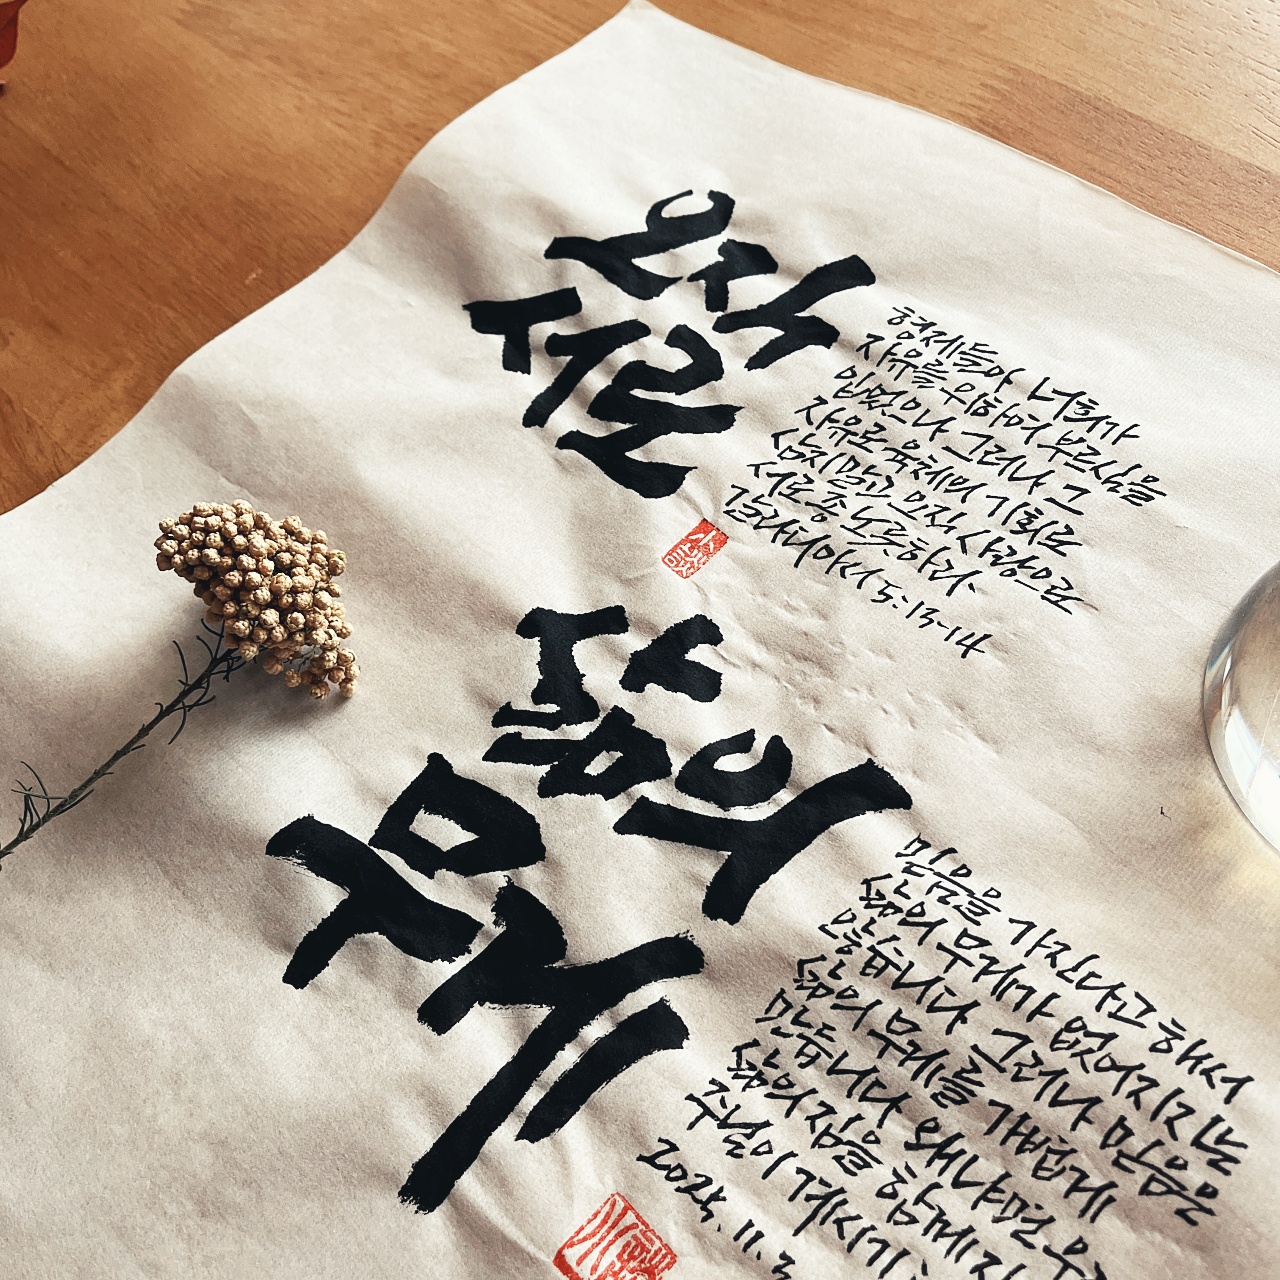 형제들아 너희가
자유를 위하여 부르심을
입었으나 그러나 그
자유로 육체의 기회로
삼지말고 오직 사랑으로
서로 종 노릇하라.
갈라디아서 5:13-14
삶의
무게
믿음을 가진다고 해서
삶의 무게가 없어지지는
않습니다 그러나 믿음은
삶의 무게를 가볍게
만듭니다 왜냐면 우
삶의 짐을 함께
주님이 계시기
2025. 11. 3